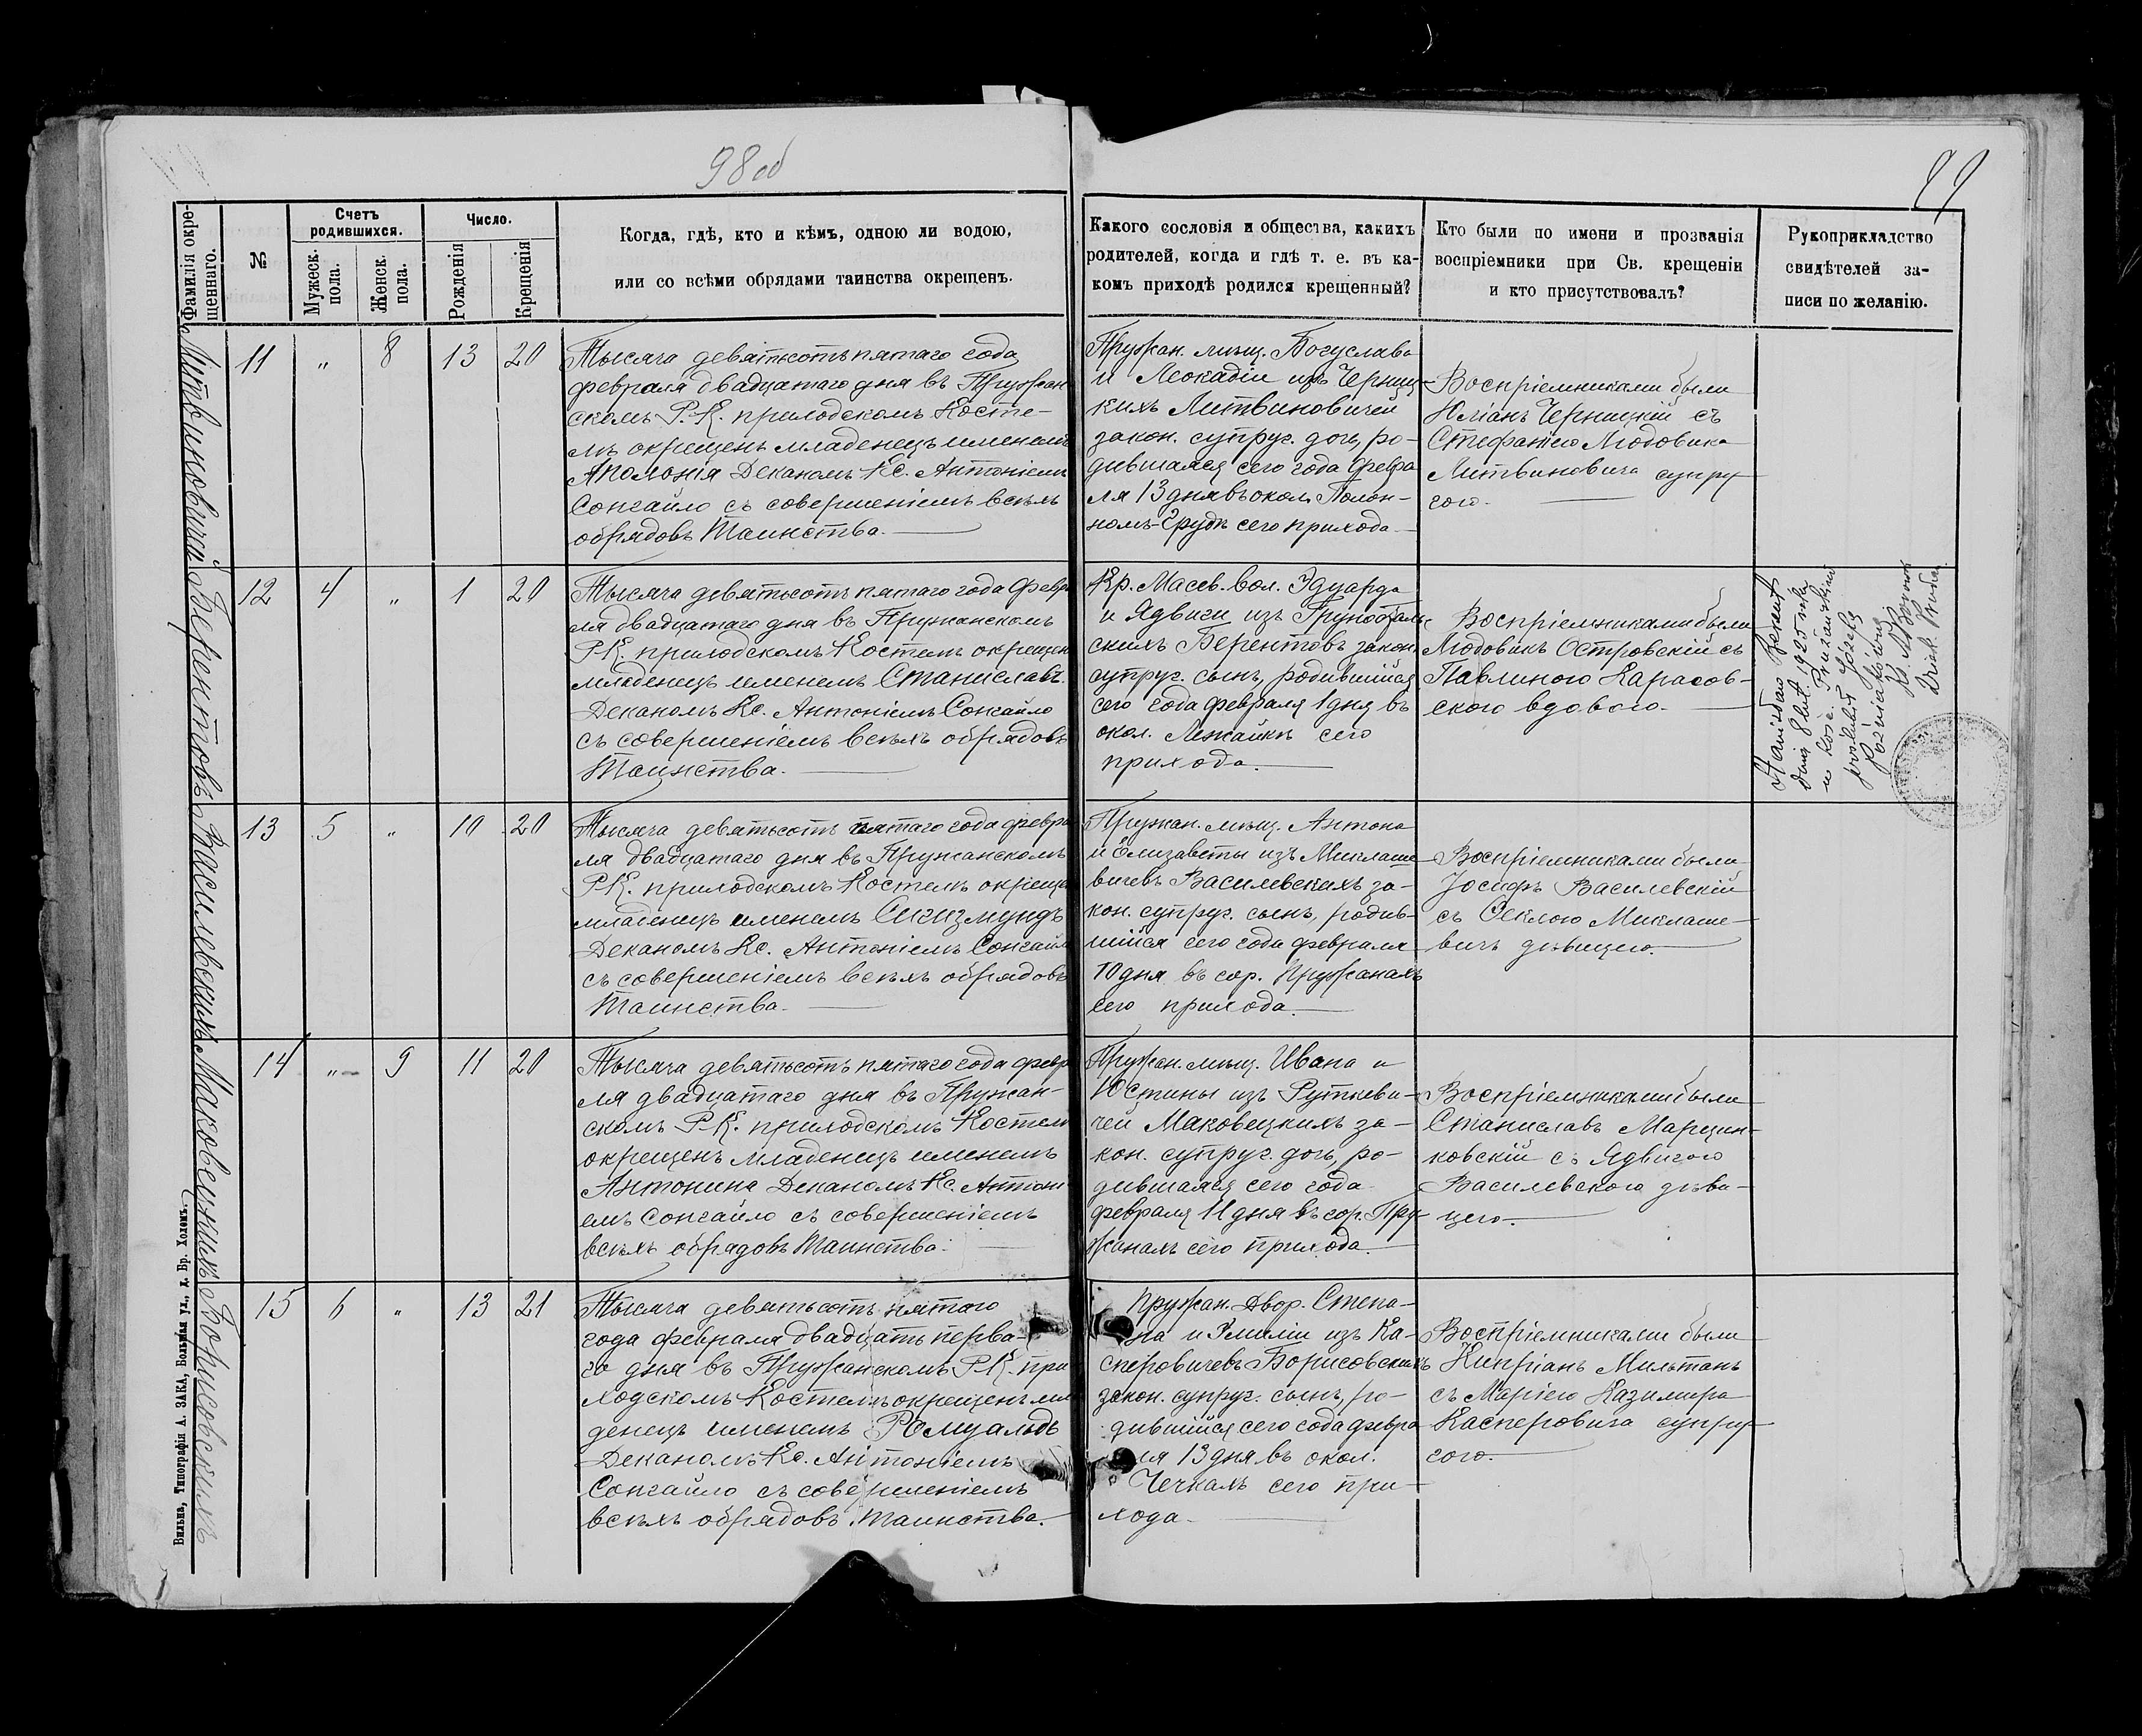 98 об
99
Фамилія окре-
щеннаго.
№
Счетъ
родившихся.
Мужеск.
пола.
Женск.
пола.
Число.
Рожденія
Крещенія
Когда, гдѣ, кто и кѣмъ, одною ли водою,
или со всѣми обрядами таинства окрещенъ.
Какого сословія и общества, какихъ
родителей, когда и гдѣ т. е. въ ка-
комъ приходѣ родился крещенный?
Кто были по имени и прозванія
воспріемники при Св. крещеніи
и кто присутствовалъ?
Рукоприкладство
свидѣтелей за-
писи по желанію.
Литвиновичей
11 „ 8 13 20
Тысяча девятьсотъ пятаго года
февраля двадцатаго дня въ Пружан
скомъ Р.-К. приходскомъ Косте-
лѣ окрещенъ младенецъ именемъ
Аполонія Деканомъ Кс. Антоніемъ
Сонгайло съ совершеніемъ всѣхъ
обрядовъ Таинства.
Пружан. мѣщ. Богуслава
и Леокадіи изъ Черниц-
кихъ Литвиновичей
закон. супруг. дочь, ро-
дившаяся сего года февра
ля 13 дня въ окол. Полон-
номъ-Грудѣ сего прихода
Воспріемниками были
Юліанъ Черницкій съ
Стефаніею Людовика
Литвиновича супру
гою.
Берентовъ
12 4 „ 1 20
Тысяча девятьсотъ пятаго года Февра
ля двадцатаго дня въ Пружанскомъ
Р-К. приходскомъ Костелѣ окрещен
младенецъ именемъ Станиславъ
Деканомъ Кс. Антоніемъ Сонгайло
съ совершеніемъ всѣхъ обрядовъ
Таинства.
Кр. Масев. вол. Эдуарда
и Ядвиги изъ
скихъ Берентовъ закон.
супруг. сынъ, родившійся
сего года февраля 1 дня въ
окол. Лежайкѣ сего
прихода.
Воспріемниками были
Людовикъ Островскій съ
Павлиною Карасов-
скою вдовою.
Stanisław Berent
dnia 8 lut. 1925 roku
w kość. Prużańskim
poślubił Józefę
Василевскихъ
13 5 „ 10 20
Тысяча девятьсотъ пятаго года февра
ля двадцатаго дня въ Пружанскомъ
Р-К. приходскомъ Костелѣ окреще
младенецъ именемъ Сигизмундъ
Деканомъ Кс. Антоніемъ Сонгайл
съ совершеніемъ всѣхъ обрядовъ
Таинства.
Пружан. мѣщ. Антона
и Елизаветы изъ Миклаше
вичевъ Василевскихъ за-
кон. супруг. сынъ, родив-
шійся сего года февраля
10 дня въ гор. Пружанахъ
сего прихода.
Воспріемниками были
Іосифъ Василевскій
съ Ѳеклою Миклаше-
вичъ дѣвицею.
Маковецкихъ
14 „ 9 11 20
Тысяча девятьсотъ пятаго года февра
ля двадцатаго дня въ Пружан-
скомъ Р-К. приходскомъ Костелѣ
окрещенъ младенецъ именемъ
Антонина Деканомъ Кс. Антоні
емъ Сонгайло съ совершеніемъ
всѣхъ обрядовъ Таинства.
Пружан. мѣщ. Ивана и
Юстины изъ Руткеви-
чей Маковецкихъ за-
кон. супруг. дочь, ро-
дившаяся сего года
февраля 11 дня въ гор. Пру-
жанахъ сего прихода.
Воспріемниками были
Станиславъ Марцин-
ковскій съ Ядвигою
Василевскою дѣви-
цею.
Борисовскихъ
15 6 „ 13 21
Тысяча девятьсотъ пятаго
года февраля двадцать перва-
го дня въ Пружанскомъ Р-К. при
ходскомъ Костелѣ окрещенъ мла
денецъ именемъ Ромуальдъ
Деканомъ Кс. Антоніемъ
Сонгайло съ совершеніемъ
всѣхъ обрядовъ Таинства.
Пружан. Двор. Степа-
на и Эмиліи изъ Ка-
сперовичевъ Борисовскихъ
закон. супруг. сынъ, ро-
дившійся сего года февра
ля 13 дня въ окол.
Чечкахъ сего при-
хода.
Воспріемниками были
Кипріанъ Мильтанъ
съ Маріею Казимира
Касперовича супру-
гою.
Вильна, Типографія А. ЗАКА, Большая ул., д. Бр. Холемъ.